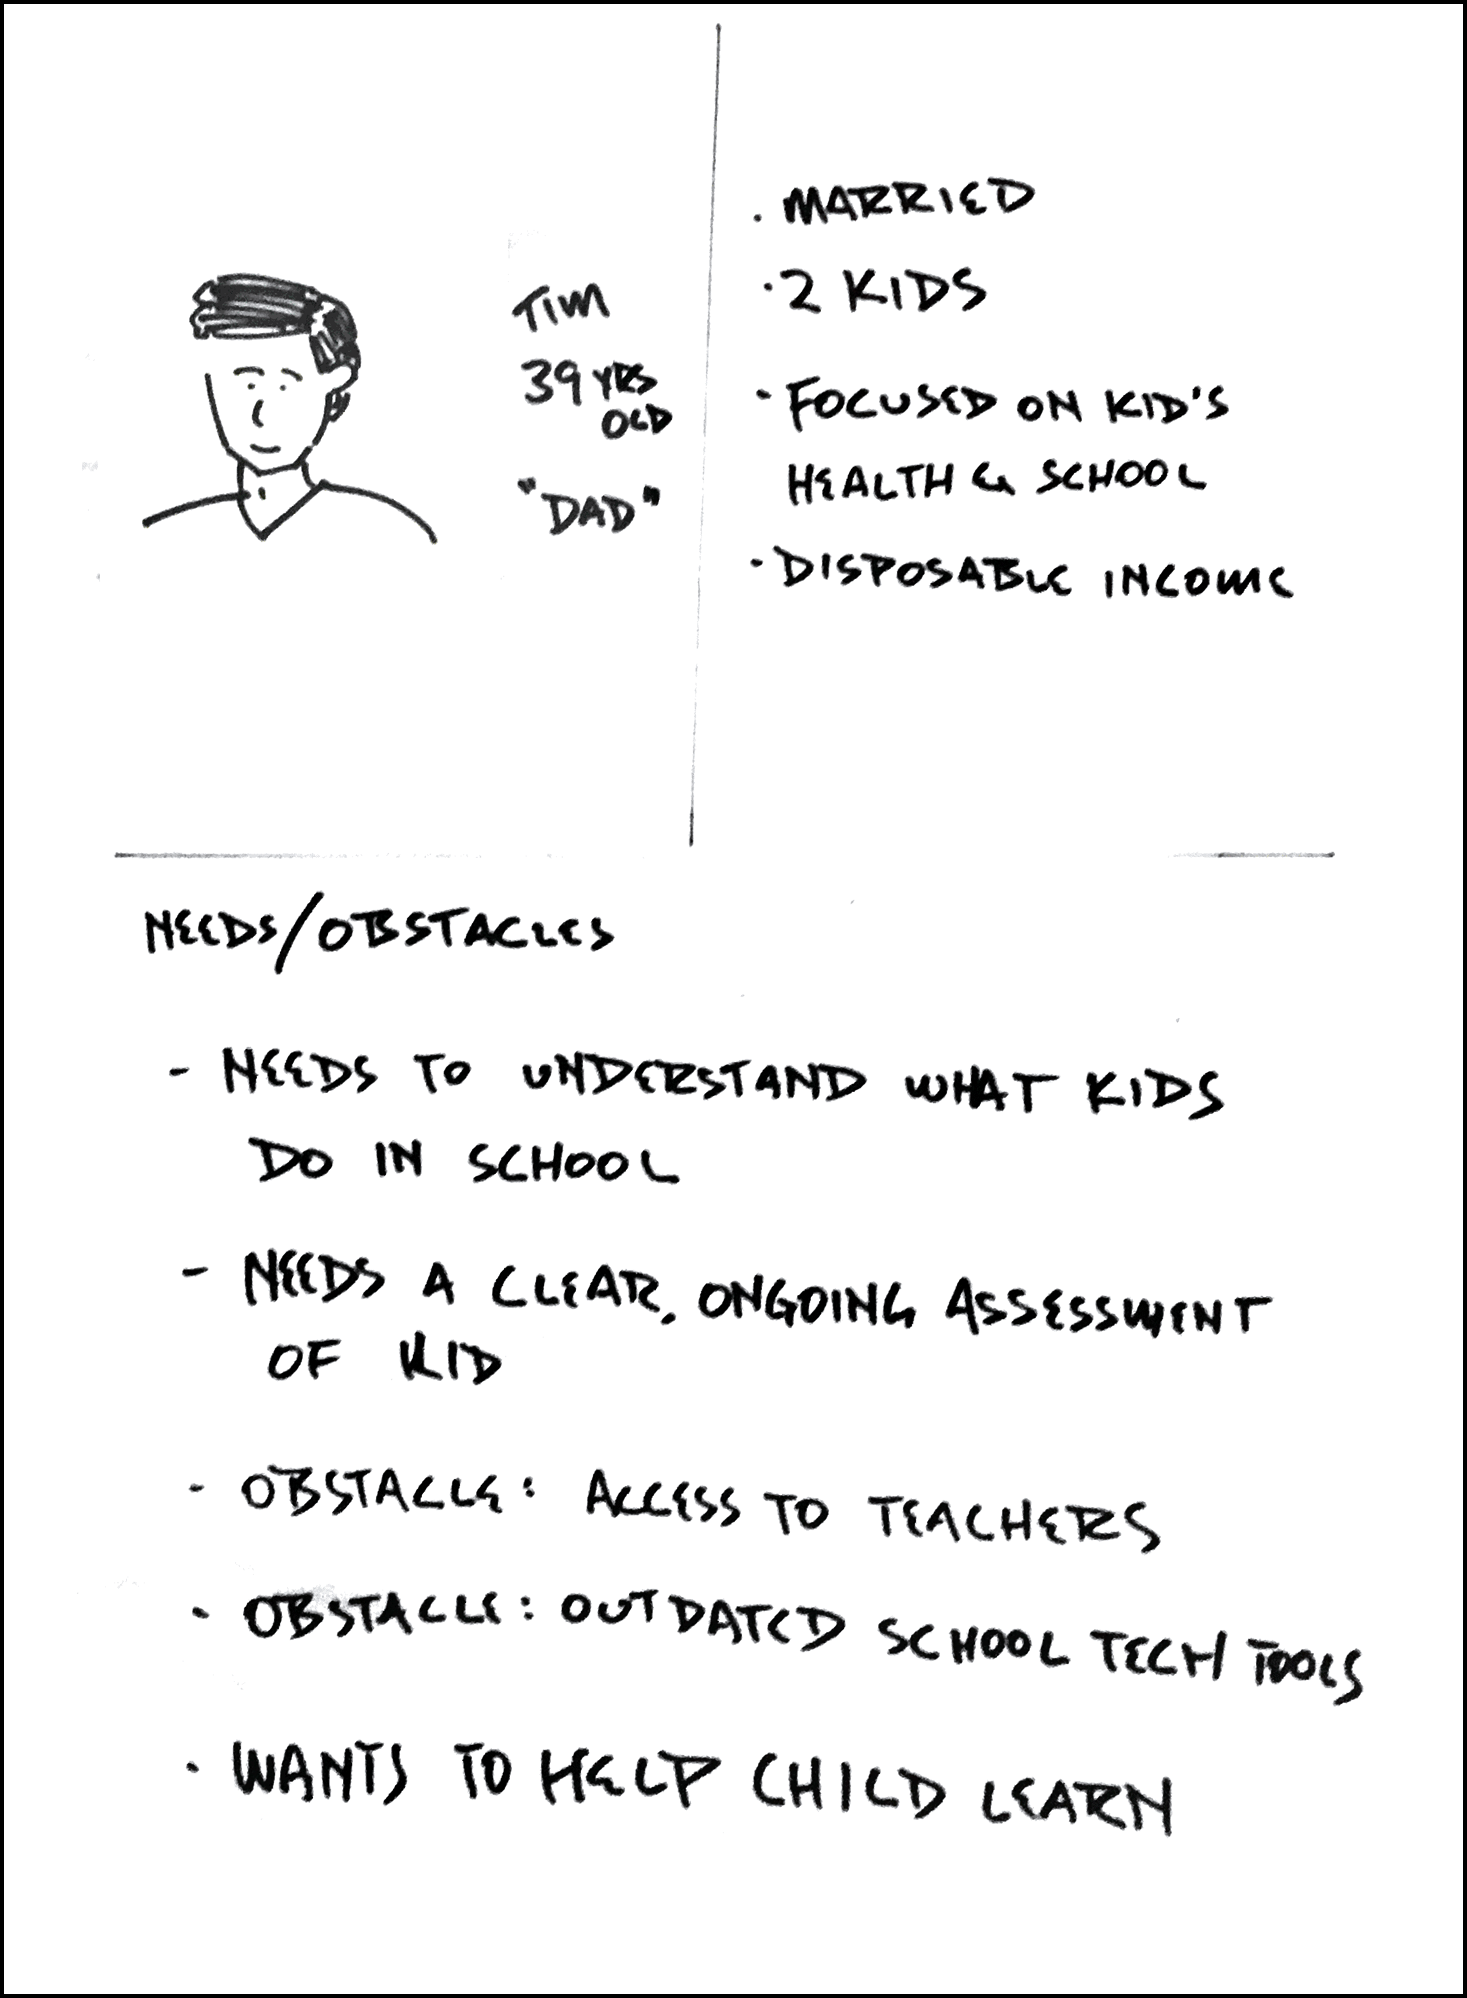 TIM
39 YRS
OLD
"DAD"
. MARRIED
· 2 KIDS
· FOCUSED ON KID'S
HEALTH & SCHOOL
· DISPOSABLE INCOME
NEEDS/OBSTACLES
- NEEDS TO UNDERSTAND WHAT KIDS
DO IN SCHOOL
- NEEDS A CLEAR, ONGOING ASSESSMENT
OF KID
- OBSTACLE: ACCESS TO TEACHERS
- OBSTACLE: OUTDATED SCHOOL TECH TOOLS
· WANTS TO HELP CHILD LEARN